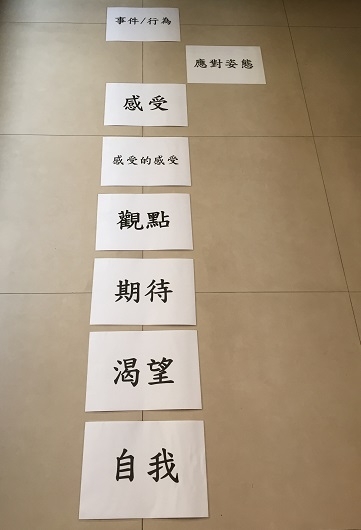 事件/行為
應對姿態
感受
感受的感受
觀點
期待
渴望
自我